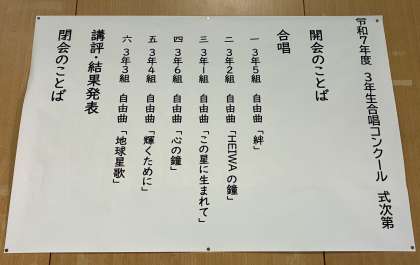 令和7年度 3年生合唱コンクール 式次第
開会のことば
合唱
一 3年5組 自由曲「絆」
二 3年2組 自由曲「HEIWAの鐘」
三 3年1組 自由曲「この星に生まれて」
四 3年6組 自由曲「心の鐘」
五 3年4組 自由曲「輝くために」
六 3年3組 自由曲「地球星歌」
講評・結果発表
閉会のことば